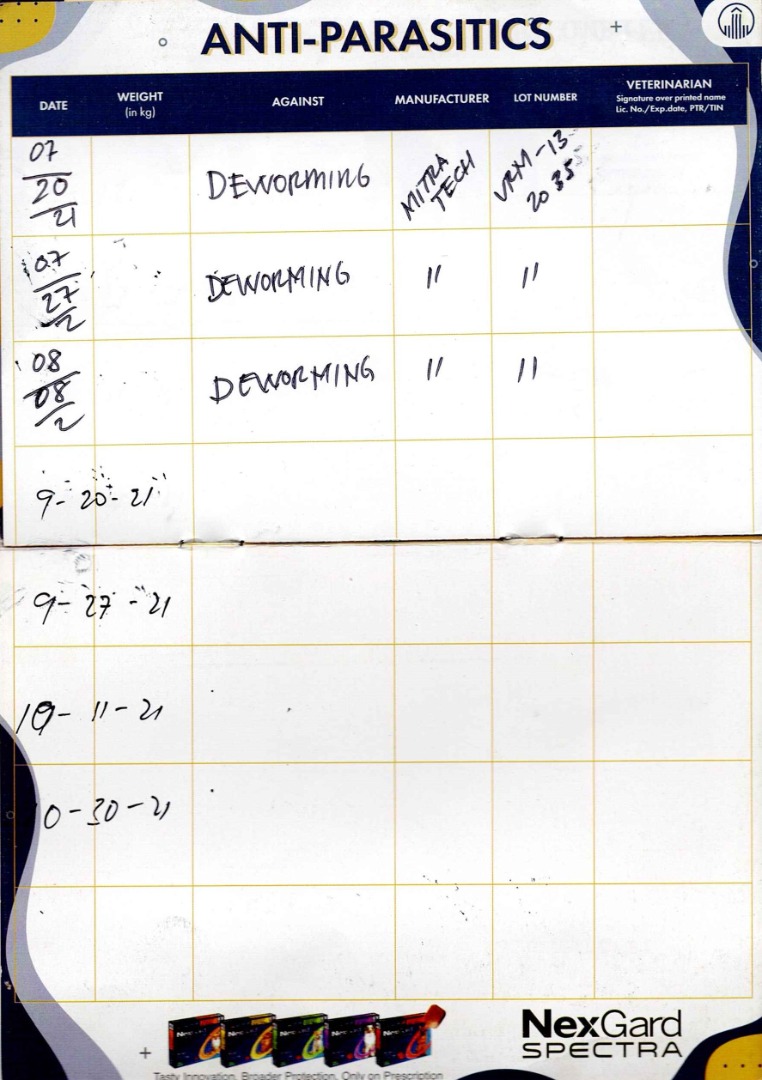 ANTI-PARASITICS
DATE WEIGHT (in kg) AGAINST MANUFACTURER LOT NUMBER VETERINARIAN
Signature over printed name
Lic. No./Exp.date, PTR/TIN
07/20/21 DEWORMING MITRA TECH VRM-13 20 35
07/27/2 DEWORMING " "
08/08/2 DEWORMING " "
9-20-21
9-27-21
10-11-21
10-30-21
NexGard
SPECTRA
Tasty Innovation. Broader Protection. Only on Prescription